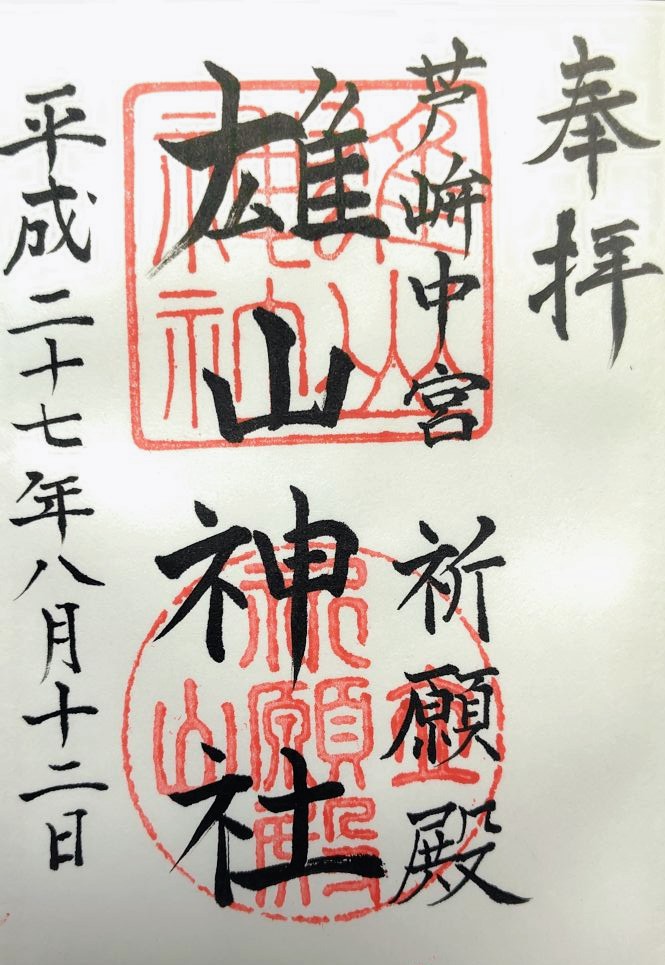 奉拝
芦峅中宮 祈願殿
雄山神社
平成二十七年八月十二日
雄山神社